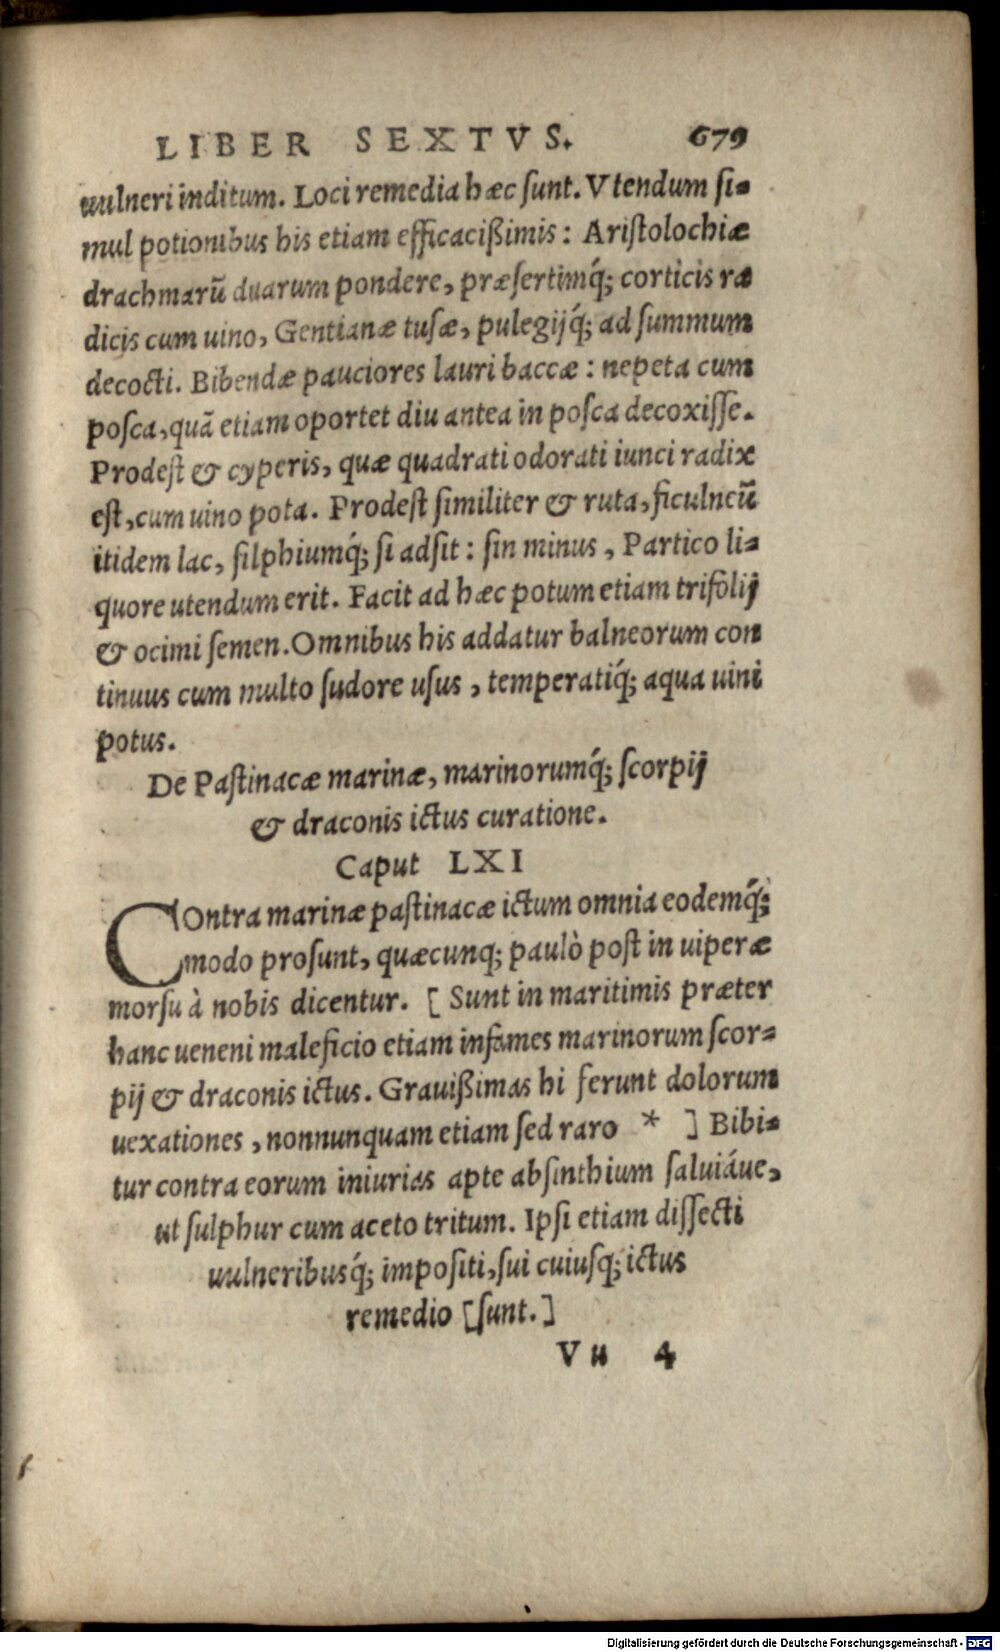 LIBER SEXTVS. 679
uulneri inditum. Loci remedia hæc sunt. Vtendum si-
mul potionibus his etiam efficacißimis: Aristolochiæ
drachmarũ duarum pondere, præsertimq́; corticis ra
dicis cum uino, Gentianæ tusæ, pulegijq́; ad summum
decocti. Bibendæ pauciores lauri baccæ: nepeta cum
posca, quã etiam oportet diu antea in posca decoxisse.
Prodest & cyperis, quæ quadrati odorati iunci radix
est, cum uino pota. Prodest similiter & ruta, ficulneũ
itidem lac, silphiumq́; si adsit: sin minus, Partico li-
quore utendum erit. Facit ad hæc potum etiam trifolij
& ocimi semen. Omnibus his addatur balneorum con
tinuus cum multo sudore usus, temperatiq́; aqua uini
potus.
De Pastinacæ marinæ, marinorumq́; scorpij
& draconis ictus curatione.
Caput LXI
Contra marinæ pastinacæ ictum omnia eodemq́;
modo prosunt, quæcunq; paulò post in uiperæ
morsu à nobis dicentur. [ Sunt in maritimis præter
hanc ueneni maleficio etiam infames marinorum scor-
pij & draconis ictus. Grauißimas hi ferunt dolorum
uexationes, nonnunquam etiam sed raro * ] Bibi-
tur contra eorum iniurias apte absinthium saluiáue,
ut sulphur cum aceto tritum. Ipsi etiam dissecti
uulneribusq́; impositi, sui cuiusq; ictus
remedio [sunt.]
Vu 4
Digitalisierung gefördert durch die Deutsche Forschungsgemeinschaft - DFG